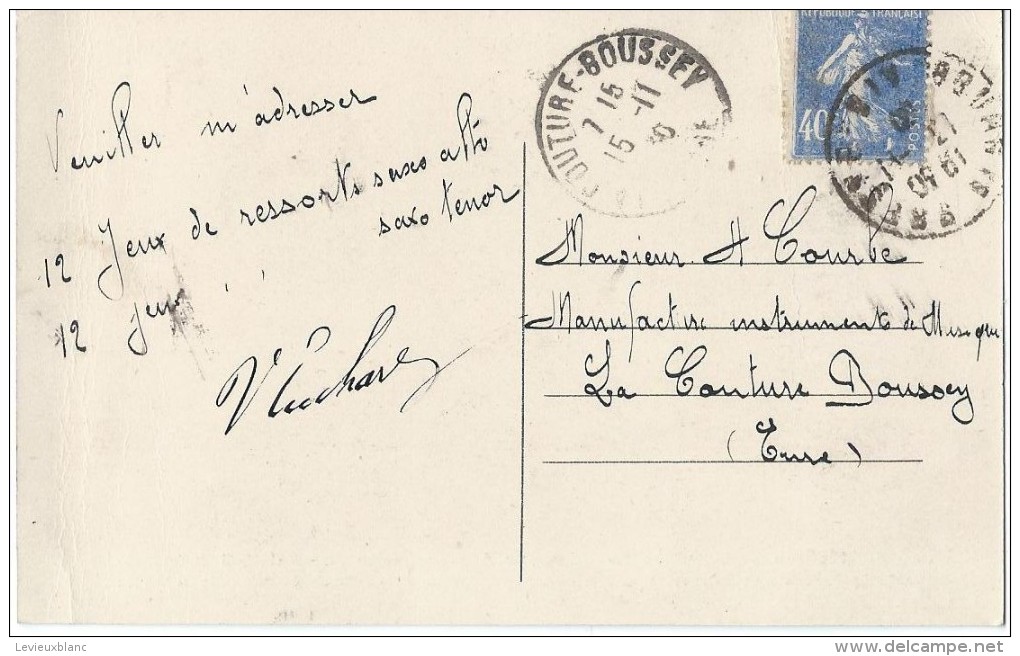 Veuillez m'adresser
12 Jeux de ressorts saxo alto
12 Jeux ' ' saxo tenor
LA COUTURE-BOUSSEY
7 15
15 -11
RÉPUBLIQUE FRANÇAISE
40
POSTES
18 30
Monsieur H Courbe
Manufact instrument de Musique
La Couture Boussey
(Eure)
Levieuxblanc
www.delcampe.net